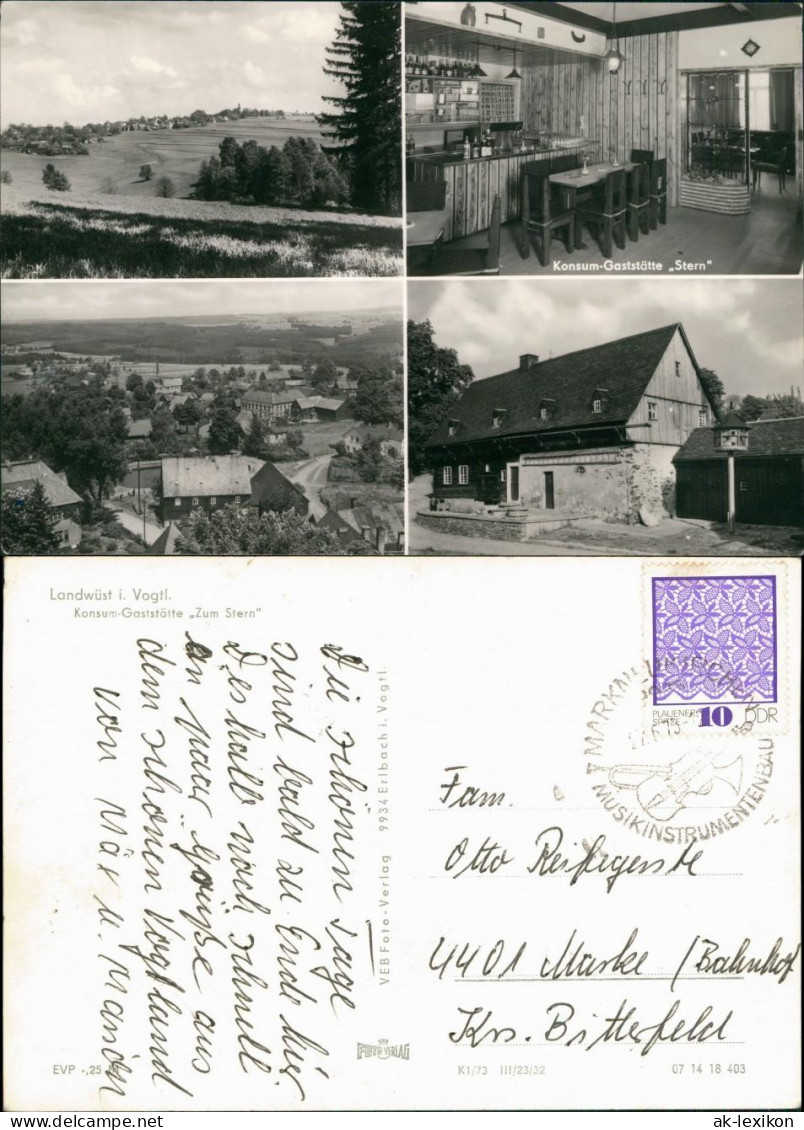 Konsum-Gaststätte „Stern"
Landwüst i. Vogtl.
Konsum-Gaststätte „Zum Stern"
Die schönen Tage
sind bald zu Ende hier
Deshalb noch schnell
ein paar Grüße aus
dem schönen Vogtland
von Max u.
VEB Foto-Verlag 9934 Erlbach i. Vogtl.
PLAUENER
SPITZE
10 DDR
MARKNEUKIRCHEN
MUSIKINSTRUMENTENBAU
Fam.
Otto Reifegerste
4401 Marke (Bahnhof
Krs. Bitterfeld
EVP -,25
FOTO VERLAG
K1/73 III/23/32 07 14 18 403
ak-lexikon.de